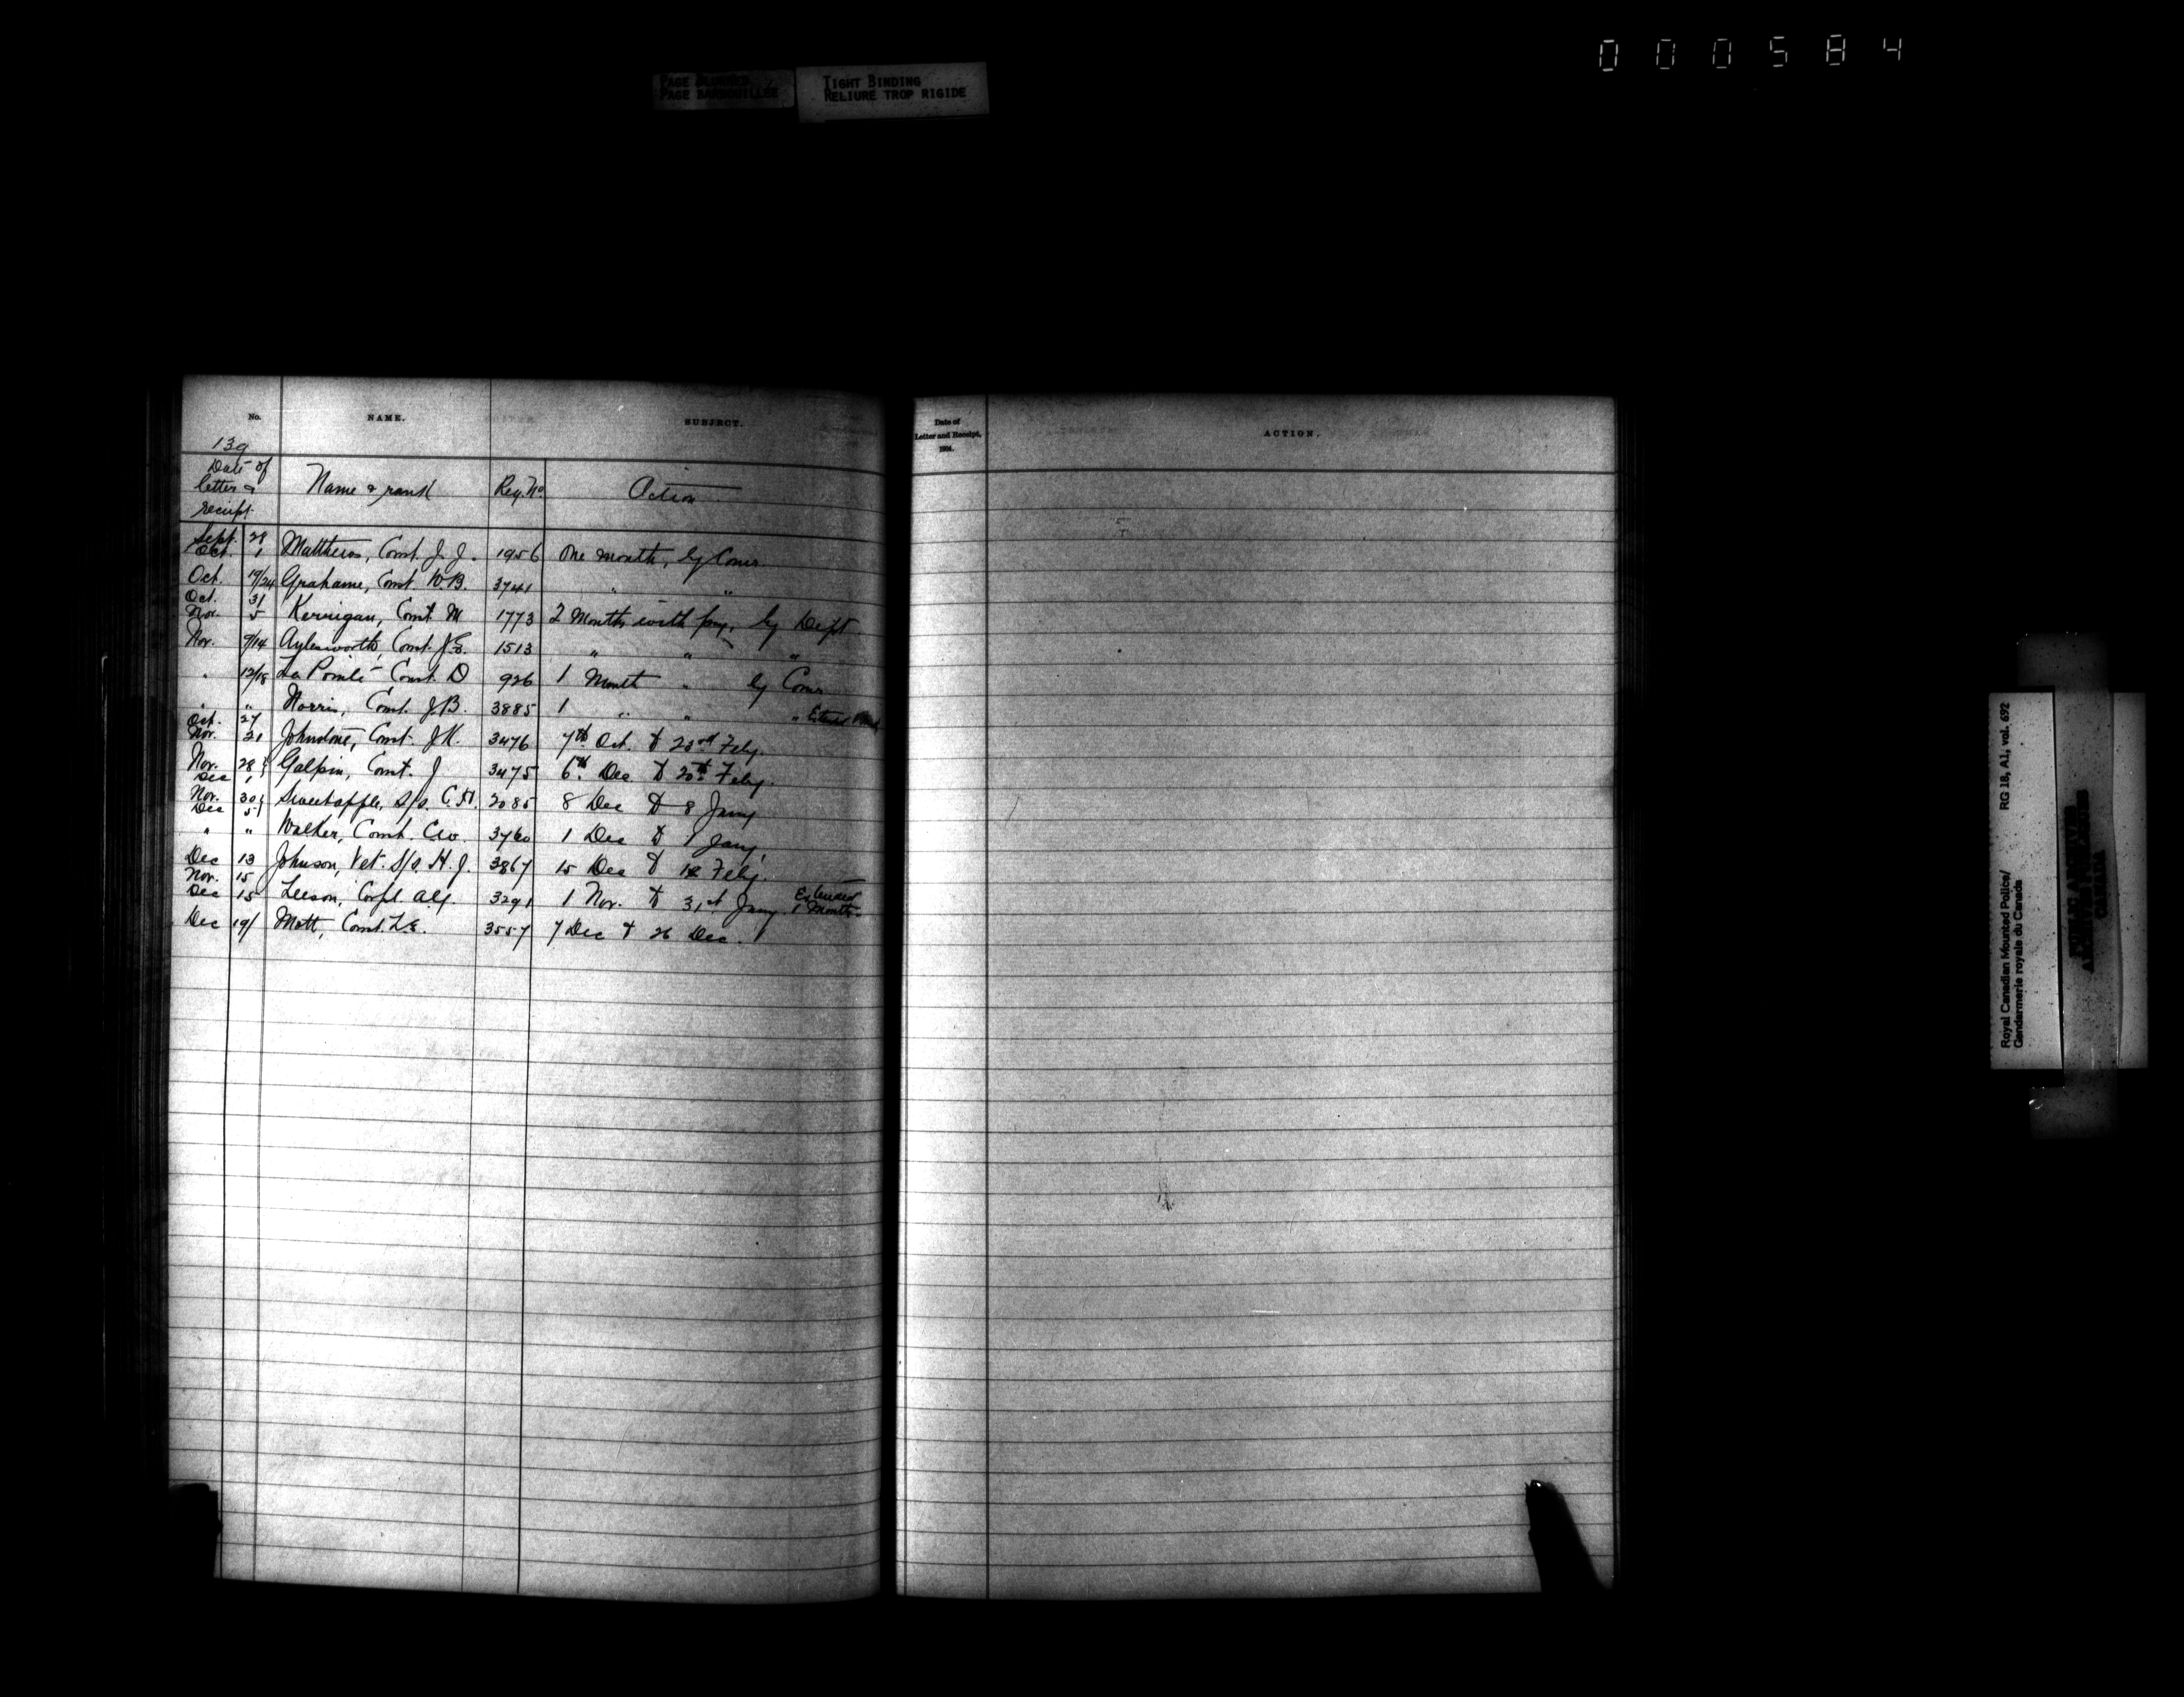 000584
PAGE BLURRED
PAGE BARBOUILLEE
TIGHT BINDING
RELIURE TROP RIGIDE
No. NAME. SUBJECT.
139
Date of letter & receipt Name & rank Reg. No. Action
Sept. 28 Oct. 1 Matthews, Const. J. J. 1956 One month, by Comr
Oct. 19/24 Grahame, Const. W.B. 3741 " "
Oct. 31 Nov. 5 Kerrigan, Const. M 1773 2 Months with pay, by Dept.
Nov. 9/14 Aylesworth, Const. J.E. 1513 " " "
" 12/18 La Pointe Const. D 926 1 Month " by Comr
" " Norris, Const. J.B. 3885 1 " " "
Oct. 27 Nov. 21 Johnstone, Const. J.K. 3476 7th Oct. to 23rd Feby.
Nov. 28 Dec 1 Galpin, Const. J 3475 6th Dec to 20th Feby.
Nov. 30 Dec 5 Sweetapple, S/S. C.H. 2085 8 Dec to 8 Jany
" " Walker, Const. C.W. 3760 1 Dec to 1 Jany
Dec 13 Johnson, Vet. S/S. H.J. 3867 15 Dec to Feby.
Nov. 15 Dec 15 Leeson, Corpl. Alf. 3291 1 Nov. to 31st Jany Extended 1 Month
Dec 19/ Mott, Const. L.E. 3557 7 Dec to 26 Dec.
Date of Letter and Receipt, 1904. ACTION.
Royal Canadian Mounted Police/ RG 18, A1, vol. 692
Gendarmerie royale du Canada
PUBLIC ARCHIVES
ARCHIVES PUBLIQUES
CANADA